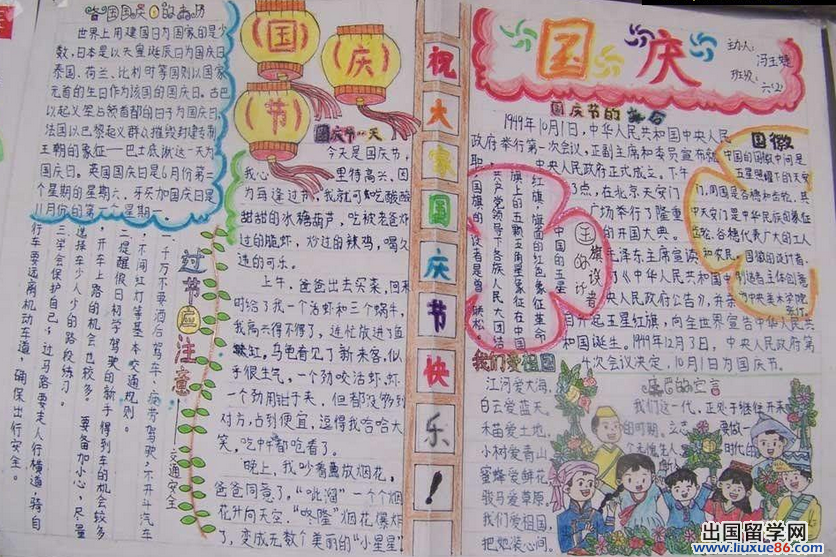 国庆
主办人:
班级: 六(2)
国庆节
祝大家国庆节快乐!
世界上用建国日为国家的是少
数,日本是以天皇诞辰日为国庆日,
泰国、荷兰、比利时等国则以国家
元首的生日作为该国的国庆日。古巴
以起义军占领首都的日子为国庆日,
法国以巴黎起义群众摧毁封建专制
王朝的象征——巴士底狱这一天为
国庆日。英国国庆日是6月份第二
个星期的星期六,牙买加国庆日是
11月份的第一个星期一。
过节应注意
——交通安全
一千万不要酒后驾车、疲劳驾驶,不开斗汽车
不闯红灯等基本交通规则。
二提醒假日初学驾驶的新手得到车的机会较多
,开车上路的机会也较多。要备加小心,尽量
选择车少人少的路段练习。
三学会保护自己:过马路要走人行横道,骑自
行车要远离机动车道,确保出行安全。
国庆节一天
今天是国庆节,
我心里特高兴,因
为每逢过节,我就可以吃酸酸
甜甜的冰糖葫芦,吃被老爸炸
过的脆虾,炒过的辣鸡,喝久
违的可乐。
上午,爸爸出去买菜,回来
时给了我一个活虾和三个蜗牛,
我高兴得不得了,连忙放进了鱼
缸,乌龟看见了新来客,似
乎很生气,一个劲咬活虾,虾
一个劲用钳子夹,但都没够到
对方,占到便宜,逗得我哈哈大
笑,吃中午都吃着了。
晚上,我吵着燕放烟花,
爸爸同意了,“呲溜”一个个烟
花升向天空,“咚隆”烟花爆炸
了,变成无数个美丽的“小星星”
国庆节的
1949年10月1日,中华人民共和国中央人民
政府举行第一次会议,正副主席和委员宣布就
职,中央人民政府正式成立。下午
3点,在北京天安门
广场举行了隆重
的开国大典。
毛泽东主席宣读
了《中华人民共和国中
央人民政府公告》,并亲
自升起五星红旗,向全世界宣告中华人民共
和国诞生。1949年12月3日,中央人民政府第
4次会议决定,10月1日为国庆节。
中国的五星
红旗,旗面的红色象征革命
,旗上的五颗五角星象征在中国
共产党领导下各族人民大团结
。国旗的设计者是曾联松。
国徽
中国的国徽中间是
五星照耀下的天安
门,周围是谷穗和齿轮。其
中天安门是中华民族的象征
,齿轮、谷穗代表广大的工人
和农民。国徽的设计者
我们爱祖国
江河爱大海,
白云爱蓝天。
禾苗爱土地,
小树爱青山
蜜蜂爱鲜花
骏马爱草原,
我们爱祖国,
把她装心间。
我们这一代,正处于继往开来
的时期。
出国留学网
www.liuxue86.com